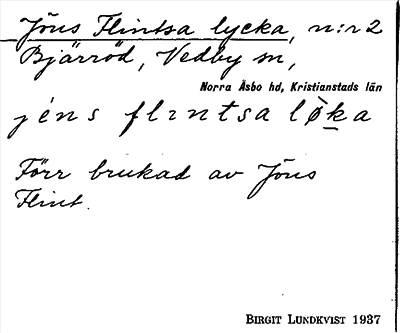 Jöns Flintsa lycka, n:r 2
Bjärröd, Vedby sn,
Norra Åsbo hd, Kristianstads län
jéns flintsa løka
Förr brukad av Jöns
Flint.
BIRGIT LUNDKVIST 1937